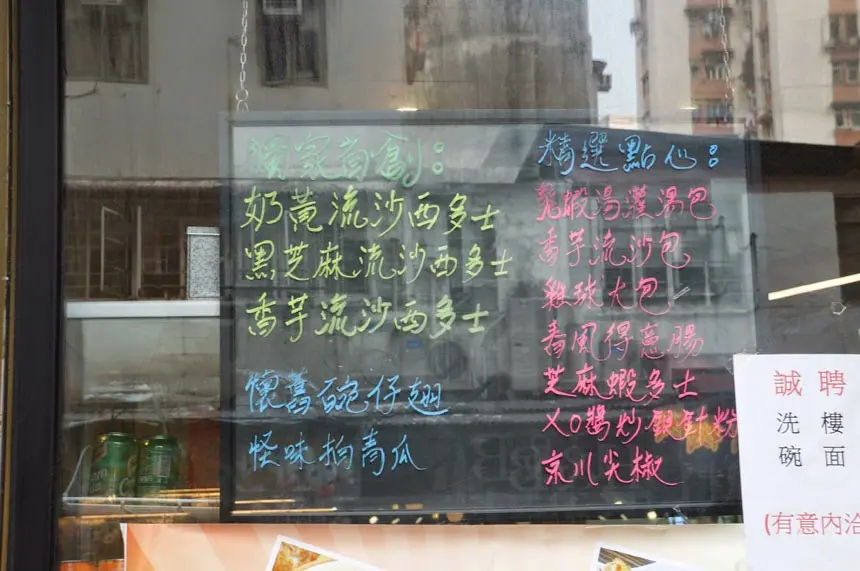 獨家首創：
奶黃流沙西多士
黑芝麻流沙西多士
香芋流沙西多士
懷舊碗仔翅
怪味拍青瓜
精選點心：
龍蝦湯灌湯包
香芋流沙包
雞球大包
春風得意腸
芝麻蝦多士
XO醬炒銀針粉
京川尖椒
誠聘
洗樓
碗面
(有意內洽